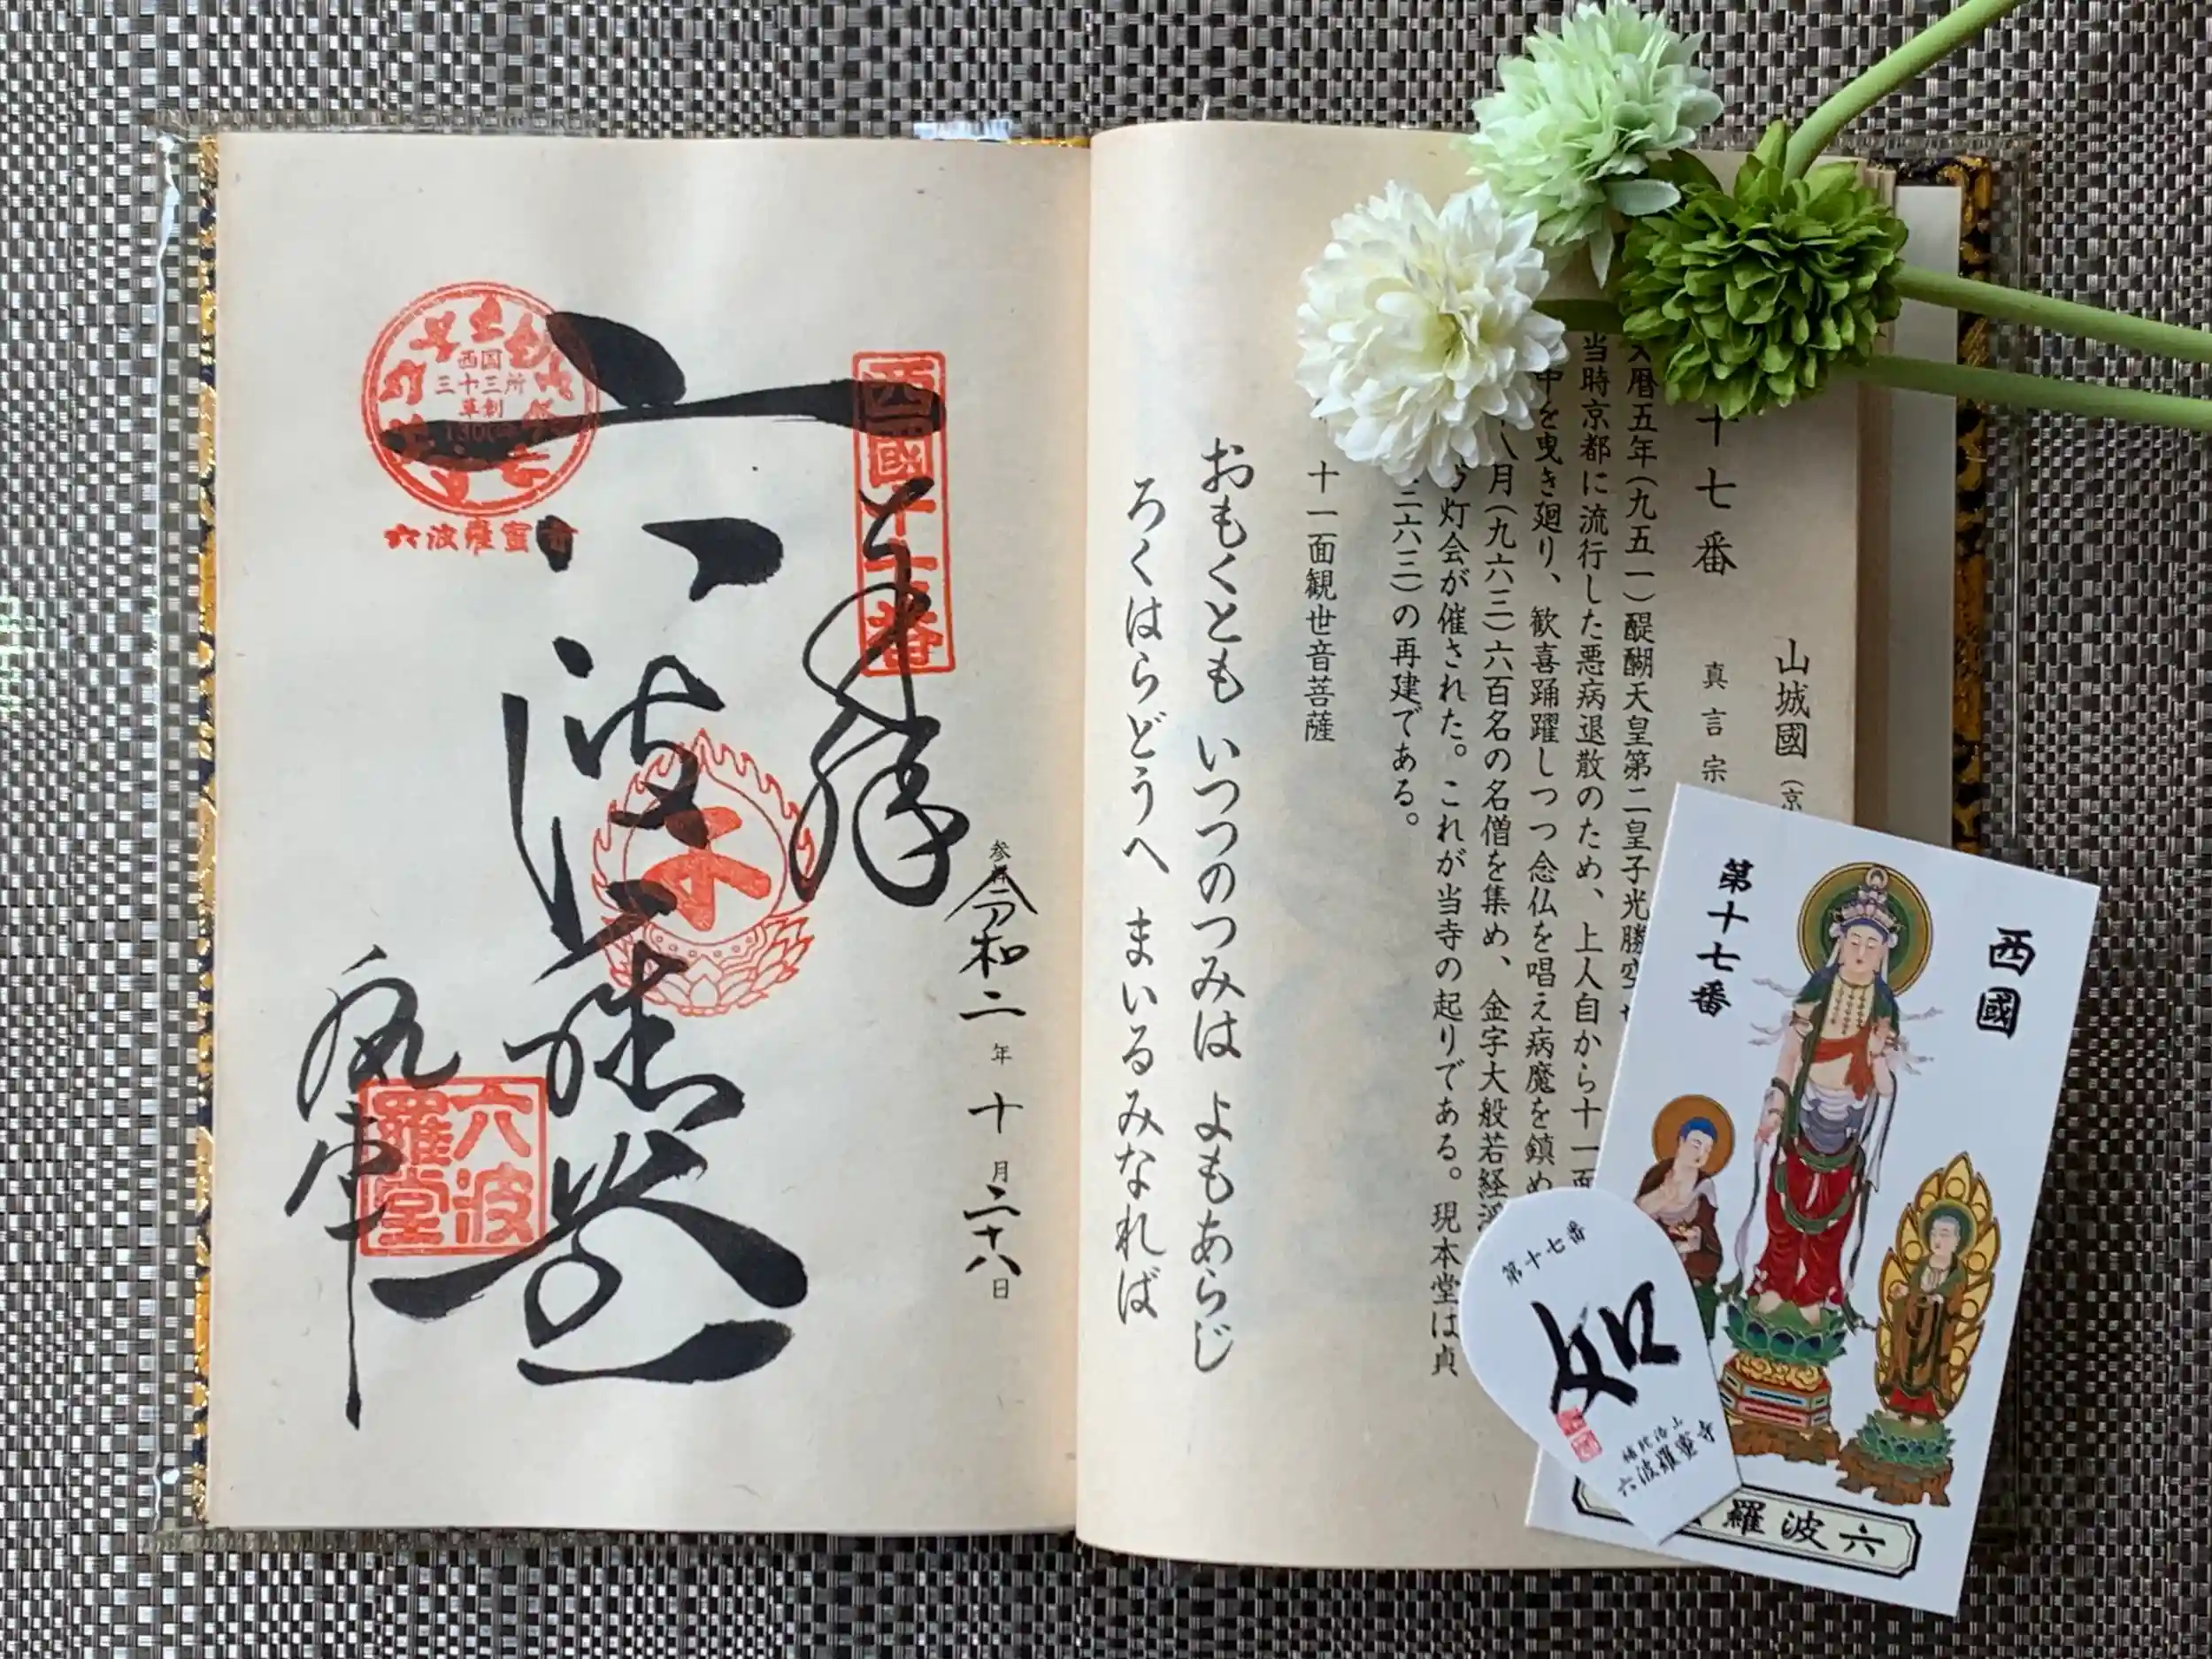 十七番
山城國（京
真言宗
暦五年（九五一）醍醐天皇第二皇子光勝空
当時京都に流行した悪病退散のため、上人自から十一面
中を曳き廻り、歓喜踊躍しつつ念仏を唱え病魔を鎮め
八月（九六三）六百名の名僧を集め、金字大般若経
灯会が催された。これが当寺の起りである。現本堂は貞
二六三）の再建である。
十一面観世音菩薩
おもくとも いつつのつみは よもあらじ
ろくはらどうへ まいるみなれば
西國十七番
奉拝
参拝 令和二年十月二十八日
六波羅堂
西国
三十三所
草創
六波羅蜜寺
六波
羅堂
西國
第十七番
六波羅
第十七番
如
補陀洛山
六波羅蜜寺